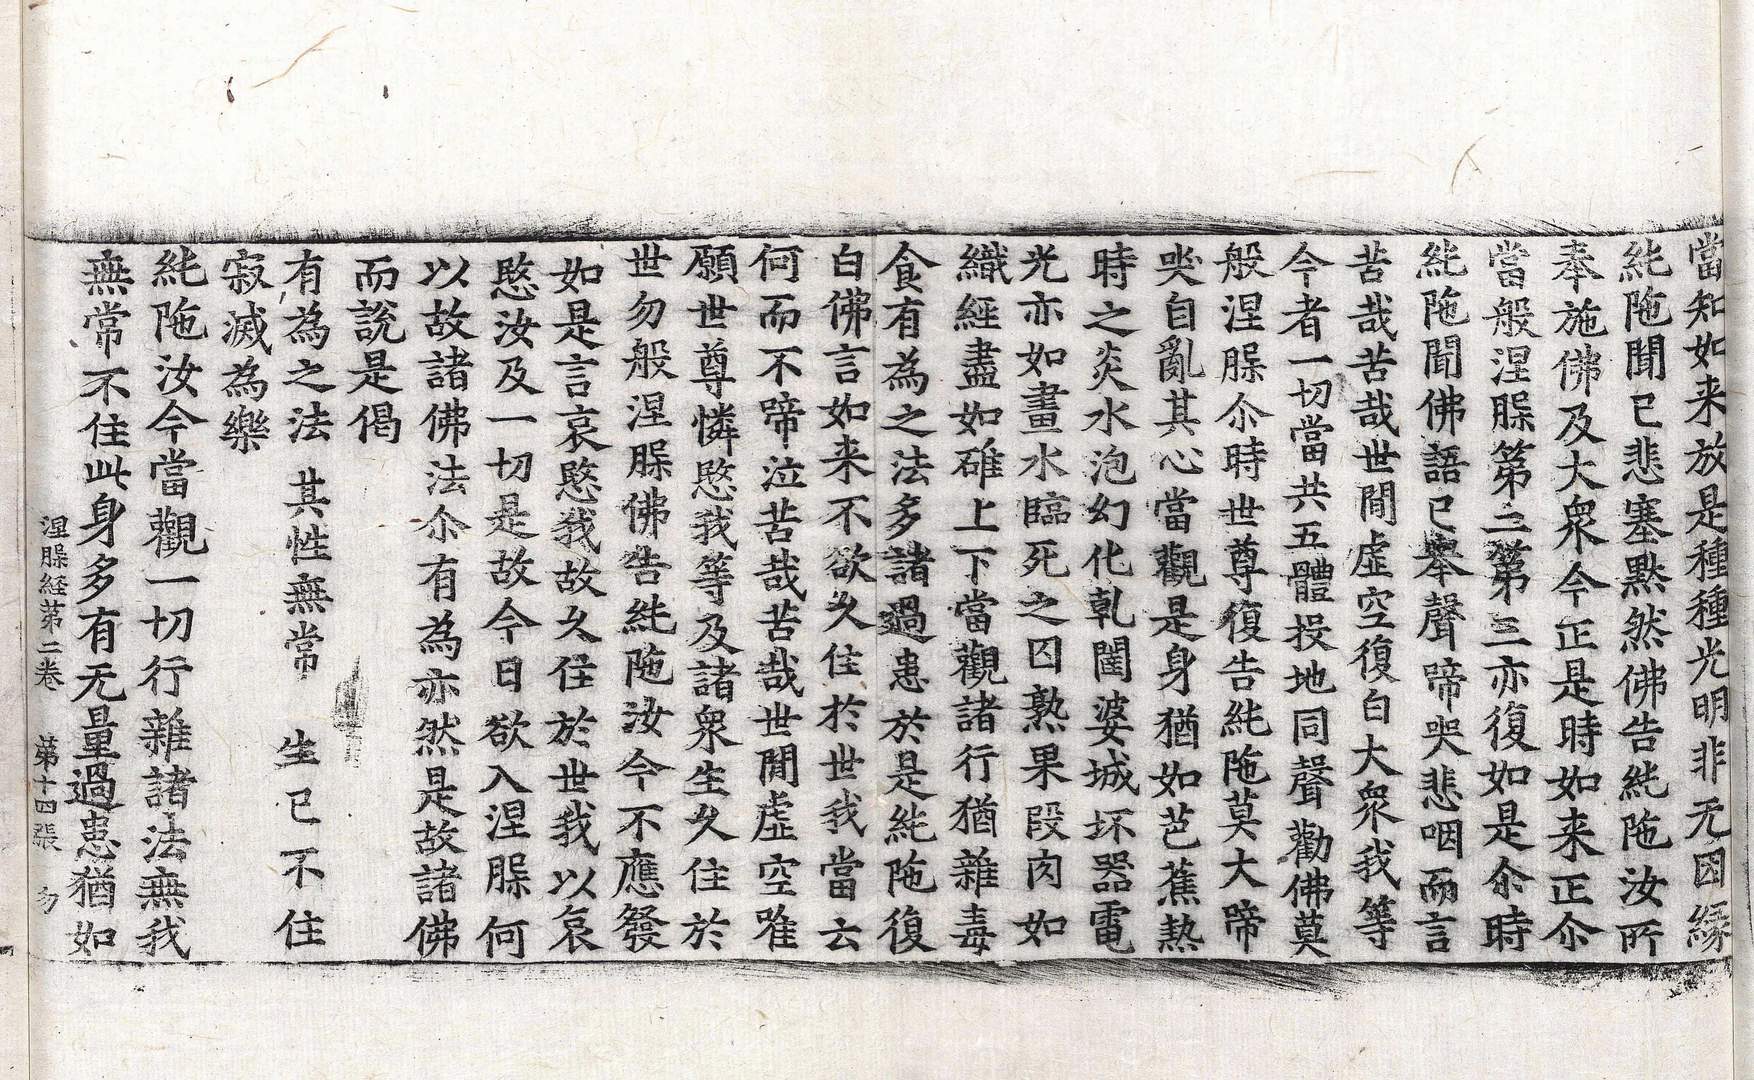 當知如来放是種種光明非无因緣
純陁聞已悲塞黙然佛告純陁汝所
奉施佛及大衆今正是時如来正尒
當般涅脲第二第三亦復如是尒時
純陁聞佛語已舉聲啼哭悲咽而言
苦哉苦哉世間虛空復白大衆我等
今者一切當共五體投地同聲勸佛莫
般涅脲尒時世尊復告純陁莫大啼
哭自亂其心當觀是身猶如芭蕉熱
時之炎水泡幻化乹闥婆城坏器電
光亦如畫水臨死之囚熟果段肉如
織經盡如碓上下當觀諸行猶雜毒
食有為之法多諸過患於是純陁復
白佛言如来不欲久住於世我當云
何而不啼泣苦哉苦哉世間虛空唯
願世尊憐愍我等及諸衆生久住於
世勿般涅脲佛告純陁汝今不應發
如是言哀愍我故久住於世我以哀
愍汝及一切是故今日欲入涅脲何
以故諸佛法尒有為亦然是故諸佛
而說是偈
有為之法 其性無常 生已不住
寂滅為樂
純陁汝今當觀一切行雜諸法無我
無常不住此身多有无量過患猶如
涅脲経第二巻 第十四張 勿